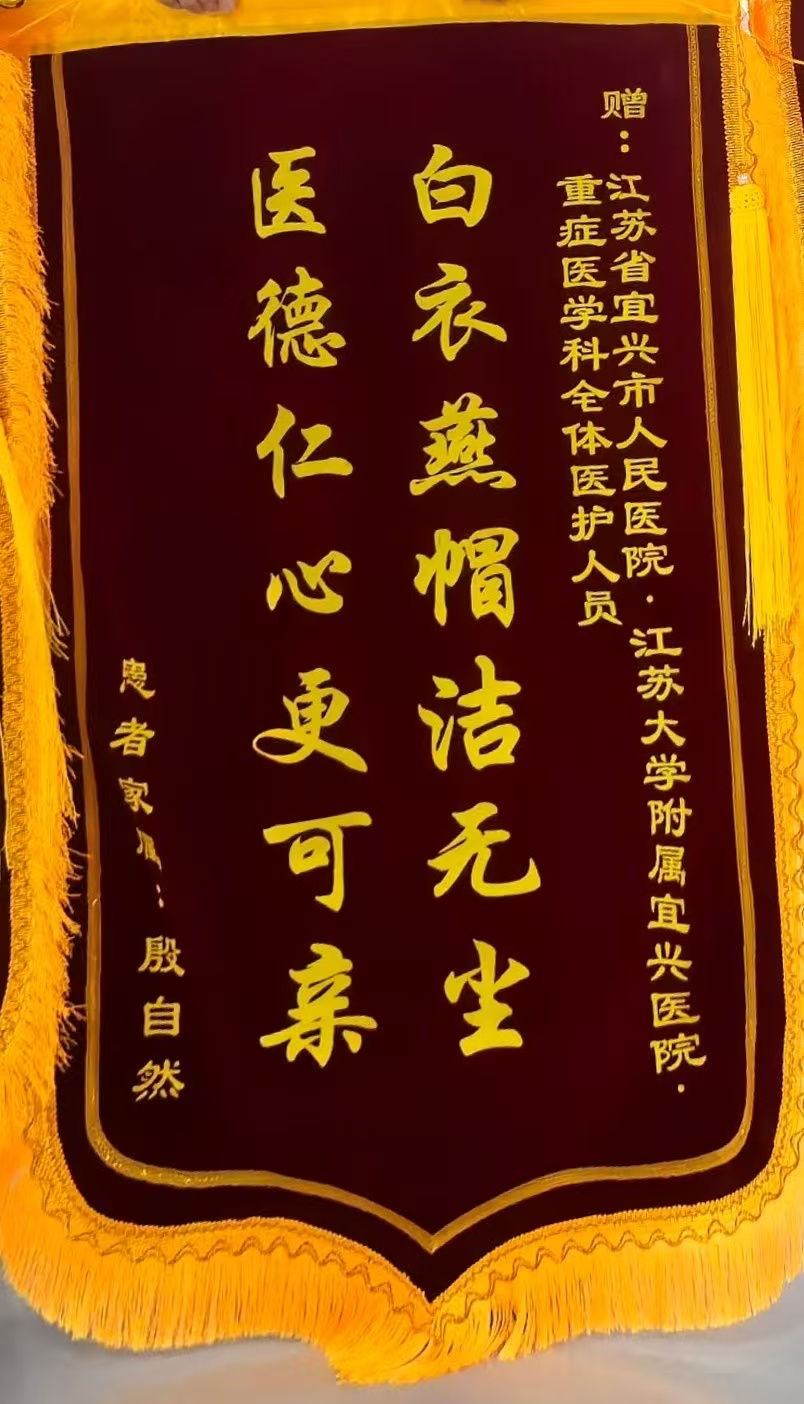 赠：江苏省宜兴市人民医院·江苏大学附属宜兴医院·
重症医学科全体医护人员
白衣燕帽洁无尘
医德仁心更可亲
患者家属：殷自然